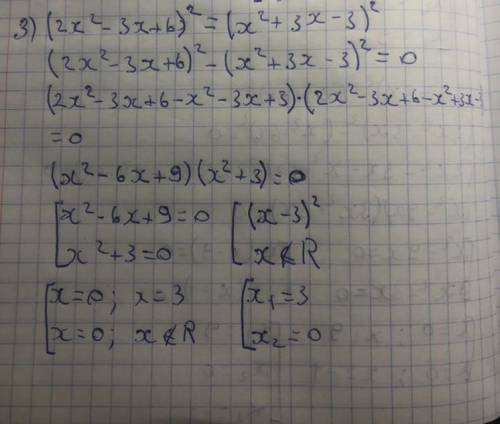 3) (2x² - 3x + 6)² = (x² + 3x - 3)²
(2x² - 3x + 6)² - (x² + 3x - 3)² = 0
(2x² - 3x + 6 - x² - 3x + 3)·(2x² - 3x + 6 - x² + 3x -
= 0
(x² - 6x + 9)(x² + 3) = 0
[x² - 6x + 9 = 0 [(x - 3)²
x² + 3 = 0 x ∉ R
[x = 0; x = 3 [x₁ = 3
x = 0; x ∉ R x₂ = 0